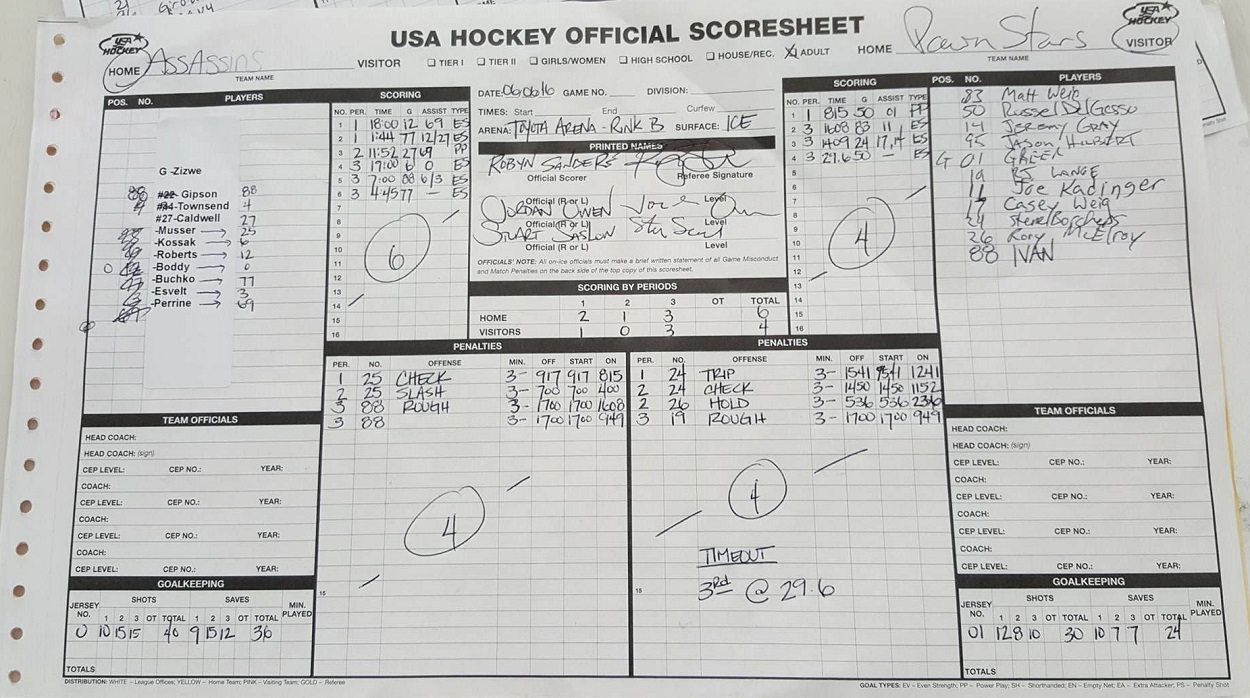 USA HOCKEY OFFICIAL SCORESHEET
USA HOCKEY
HOME Assassins VISITOR
TEAM NAME
☐ TIER I ☐ TIER II ☐ GIRLS/WOMEN ☐ HIGH SCHOOL ☐ HOUSE/REC. ☒ ADULT
HOME Pawn Stars VISITOR
TEAM NAME
USA HOCKEY
POS. NO. PLAYERS
G -Zizwe
88 #22- Gipson 88
4 #34-Townsend 4
#27-Caldwell 27
-Musser → 25
-Kossak → 6
-Roberts → 12
0 -Boddy → 0
-Buchko → 77
-Esvelt → 3
-Perrine → 69
SCORING
NO. PER. TIME G ASSIST TYPE
1 1 18:00 12 69 ES
2 1 1:44 77 12/27 ES
3 2 11:52 27 69 PP
4 3 17:00 6 0 ES
5 3 7:00 88 6/3 ES
6 3 4:45 77 — ES
7
8
9
10
11
12
13
14
15
16
6
DATE: 06/06/16 GAME NO. DIVISION:
TIMES: Start End Curfew
ARENA: TOYOTA ARENA - RINK B SURFACE: ICE
PRINTED NAMES
ROBYN SANDERS
Official Scorer Referee Signature
Official (R or L) Level
JORDAN OWEN
Official (R or L) Level
STUART SASLOW
Official (R or L) Level
OFFICIALS' NOTE: All on-ice officials must make a brief written statement of all Game Misconduct
and Match Penalties on the back side of the top copy of this scoresheet.
SCORING BY PERIODS
1 2 3 OT TOTAL
HOME 2 1 3 6
VISITORS 1 0 3 4
SCORING
NO. PER. TIME G ASSIST TYPE
1 1 815 50 01 PP
2 3 1608 83 11 ES
3 3 1409 24 17,14 ES
4 3 29.6 50 — ES
5
6
7
8
9
10
11
12
13
14
15
16
4
POS. NO. PLAYERS
83 Matt Weig
50 Russel DelGesso
14 Jeremy Gray
95 Jason Hubart
G 01 GREEN
19 RJ LANGE
11 Joe Kadinger
17 Casey Weig
24 Steve Borchers
26 Rory McElroy
88 IVAN
PENALTIES
PER. NO. OFFENSE MIN. OFF START ON
1 25 CHECK 3- 917 917 815
2 25 SLASH 3- 700 700 400
3 88 ROUGH 3- 1700 1700 1608
3 88 3- 1700 1700 949
4
15
PENALTIES
PER. NO. OFFENSE MIN. OFF START ON
1 24 TRIP 3- 1541 1541 1241
2 24 CHECK 3- 1450 1450 1152
2 26 HOLD 3- 536 536 236
3 19 ROUGH 3- 1700 1700 949
4
TIMEOUT
3rd @ 29.6
15
TEAM OFFICIALS
HEAD COACH:
HEAD COACH: (sign)
CEP LEVEL: CEP NO.: YEAR:
COACH:
CEP LEVEL: CEP NO.: YEAR:
COACH:
CEP LEVEL: CEP NO.: YEAR:
COACH:
CEP LEVEL: CEP NO.: YEAR:
GOALKEEPING
JERSEY NO. SHOTS SAVES MIN. PLAYED
1 2 3 OT TOTAL 1 2 3 OT TOTAL
0 10 15 15 40 9 15 12 36
TOTALS
TEAM OFFICIALS
HEAD COACH:
HEAD COACH: (sign)
CEP LEVEL: CEP NO.: YEAR:
COACH:
CEP LEVEL: CEP NO.: YEAR:
COACH:
CEP LEVEL: CEP NO.: YEAR:
COACH:
CEP LEVEL: CEP NO.: YEAR:
GOALKEEPING
JERSEY NO. SHOTS SAVES MIN. PLAYED
1 2 3 OT TOTAL 1 2 3 OT TOTAL
01 12 8 10 30 10 7 7 24
TOTALS
DISTRIBUTION: WHITE – League Offices; YELLOW – Home Team; PINK – Visiting Team; GOLD – Referee
GOAL TYPES: EV – Even Strength; PP – Power Play; SH – Shorthanded; EN – Empty Net; EA – Extra Attacker; PS – Penalty Shot